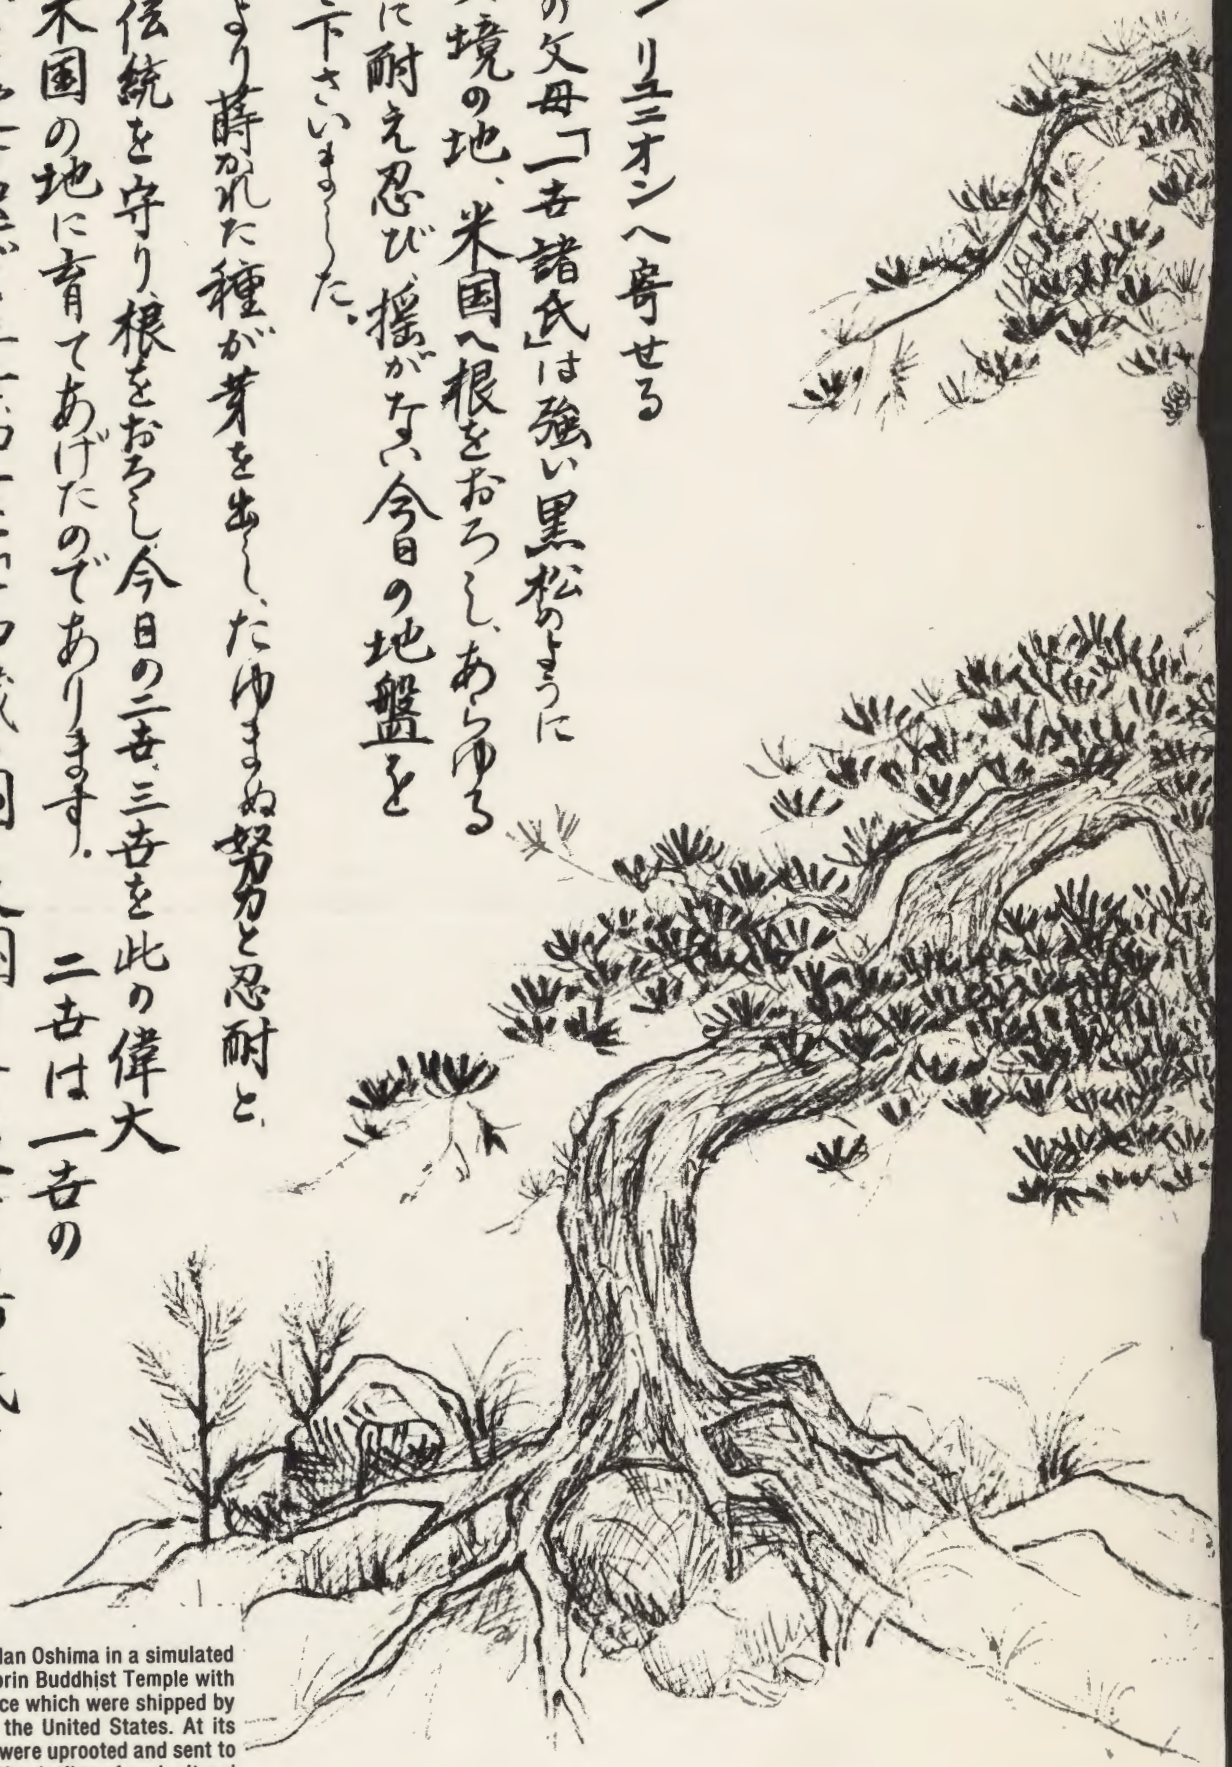 リユニオンへ寄せる
の父母「一世諸氏」は強い黒松のように
境の地、米国へ根をおろし、あらゆる
に耐え忍び、揺がない今日の地盤を
下さいました。
より蒔かれた種が芽を出し、たゆまぬ努力と忍耐と、
伝統を守り、根をおろし今日の二世、三世を此の偉大
米国の地に育てあげたのであります。 二世は一世の
lan Oshima in a simulated
orin Buddhist Temple with
ce which were shipped by
the United States. At its
were uprooted and sent to